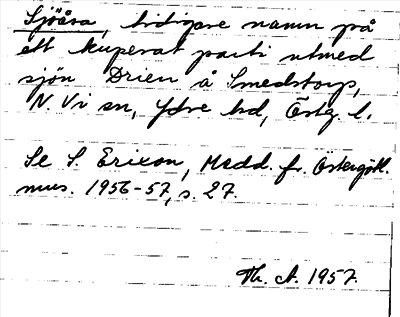 Sjöåsa, tidigare namn på
ett kuperat parti utmed
sjön Drien å Smedstorp,
N. Vi sn, Ydre hd, Östg. l.
Se S. Erixon, Medd. fr. Östergötl.
mus. 1956-57, s. 27.
Th. A. 1957.